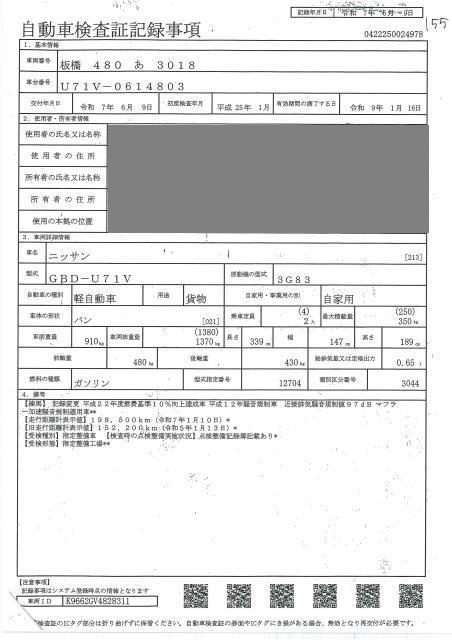 記録年月日 令和 7年 6月 9日
155
自動車検査証記録事項
0422250024978
1. 基本情報
車両番号 板橋 480 あ 3018
車台番号 U71V-0614803
交付年月日 令和 7年 6月 9日 初度検査年月 平成 25年 1月 有効期間の満了する日 令和 9年 1月 16日
2. 使用者・所有者情報
使用者の氏名又は名称
使用者の住所
所有者の氏名又は名称
所有者の住所
使用の本拠の位置
3. 車両詳細情報
車名 ニッサン [213]
型式 GBD-U71V 原動機の型式 3G83
自動車の種別 軽自動車 用途 貨物 自家用・事業用の別 自家用
車体の形状 バン [021] 乗車定員 (4) 2人 最大積載量 (250) 350kg
車両重量 910kg 車両総重量 (1380) 1370kg 長さ 339cm 幅 147cm 高さ 189cm
前軸重 480kg 後軸重 430kg 総排気量又は定格出力 0.65 L
燃料の種類 ガソリン 型式指定番号 12704 類別区分番号 3044
4. 備考
【練馬】 記録変更 平成22年度燃費基準10%向上達成車 平成12年騒音規制車 近接排気騒音規制値97dB マフラ
ー加速騒音規制適用車**
【走行距離計表示値】198,500km(令和7年1月10日)*
【旧走行距離計表示値】152,200km(令和5年1月13日)*
【受検種別】指定整備車 【検査時の点検整備実施状況】点検整備記録簿記載あり*
【受検形態】指定整備工場**
【注意事項】
記録事項はシステム登録時点の情報となります
車両ID K9662GV4828311
検査証のICタグ部分は折り曲げずに保管ください。自動車検査証の券面やICタグにき損がある場合、無効となり再交付が必要です。